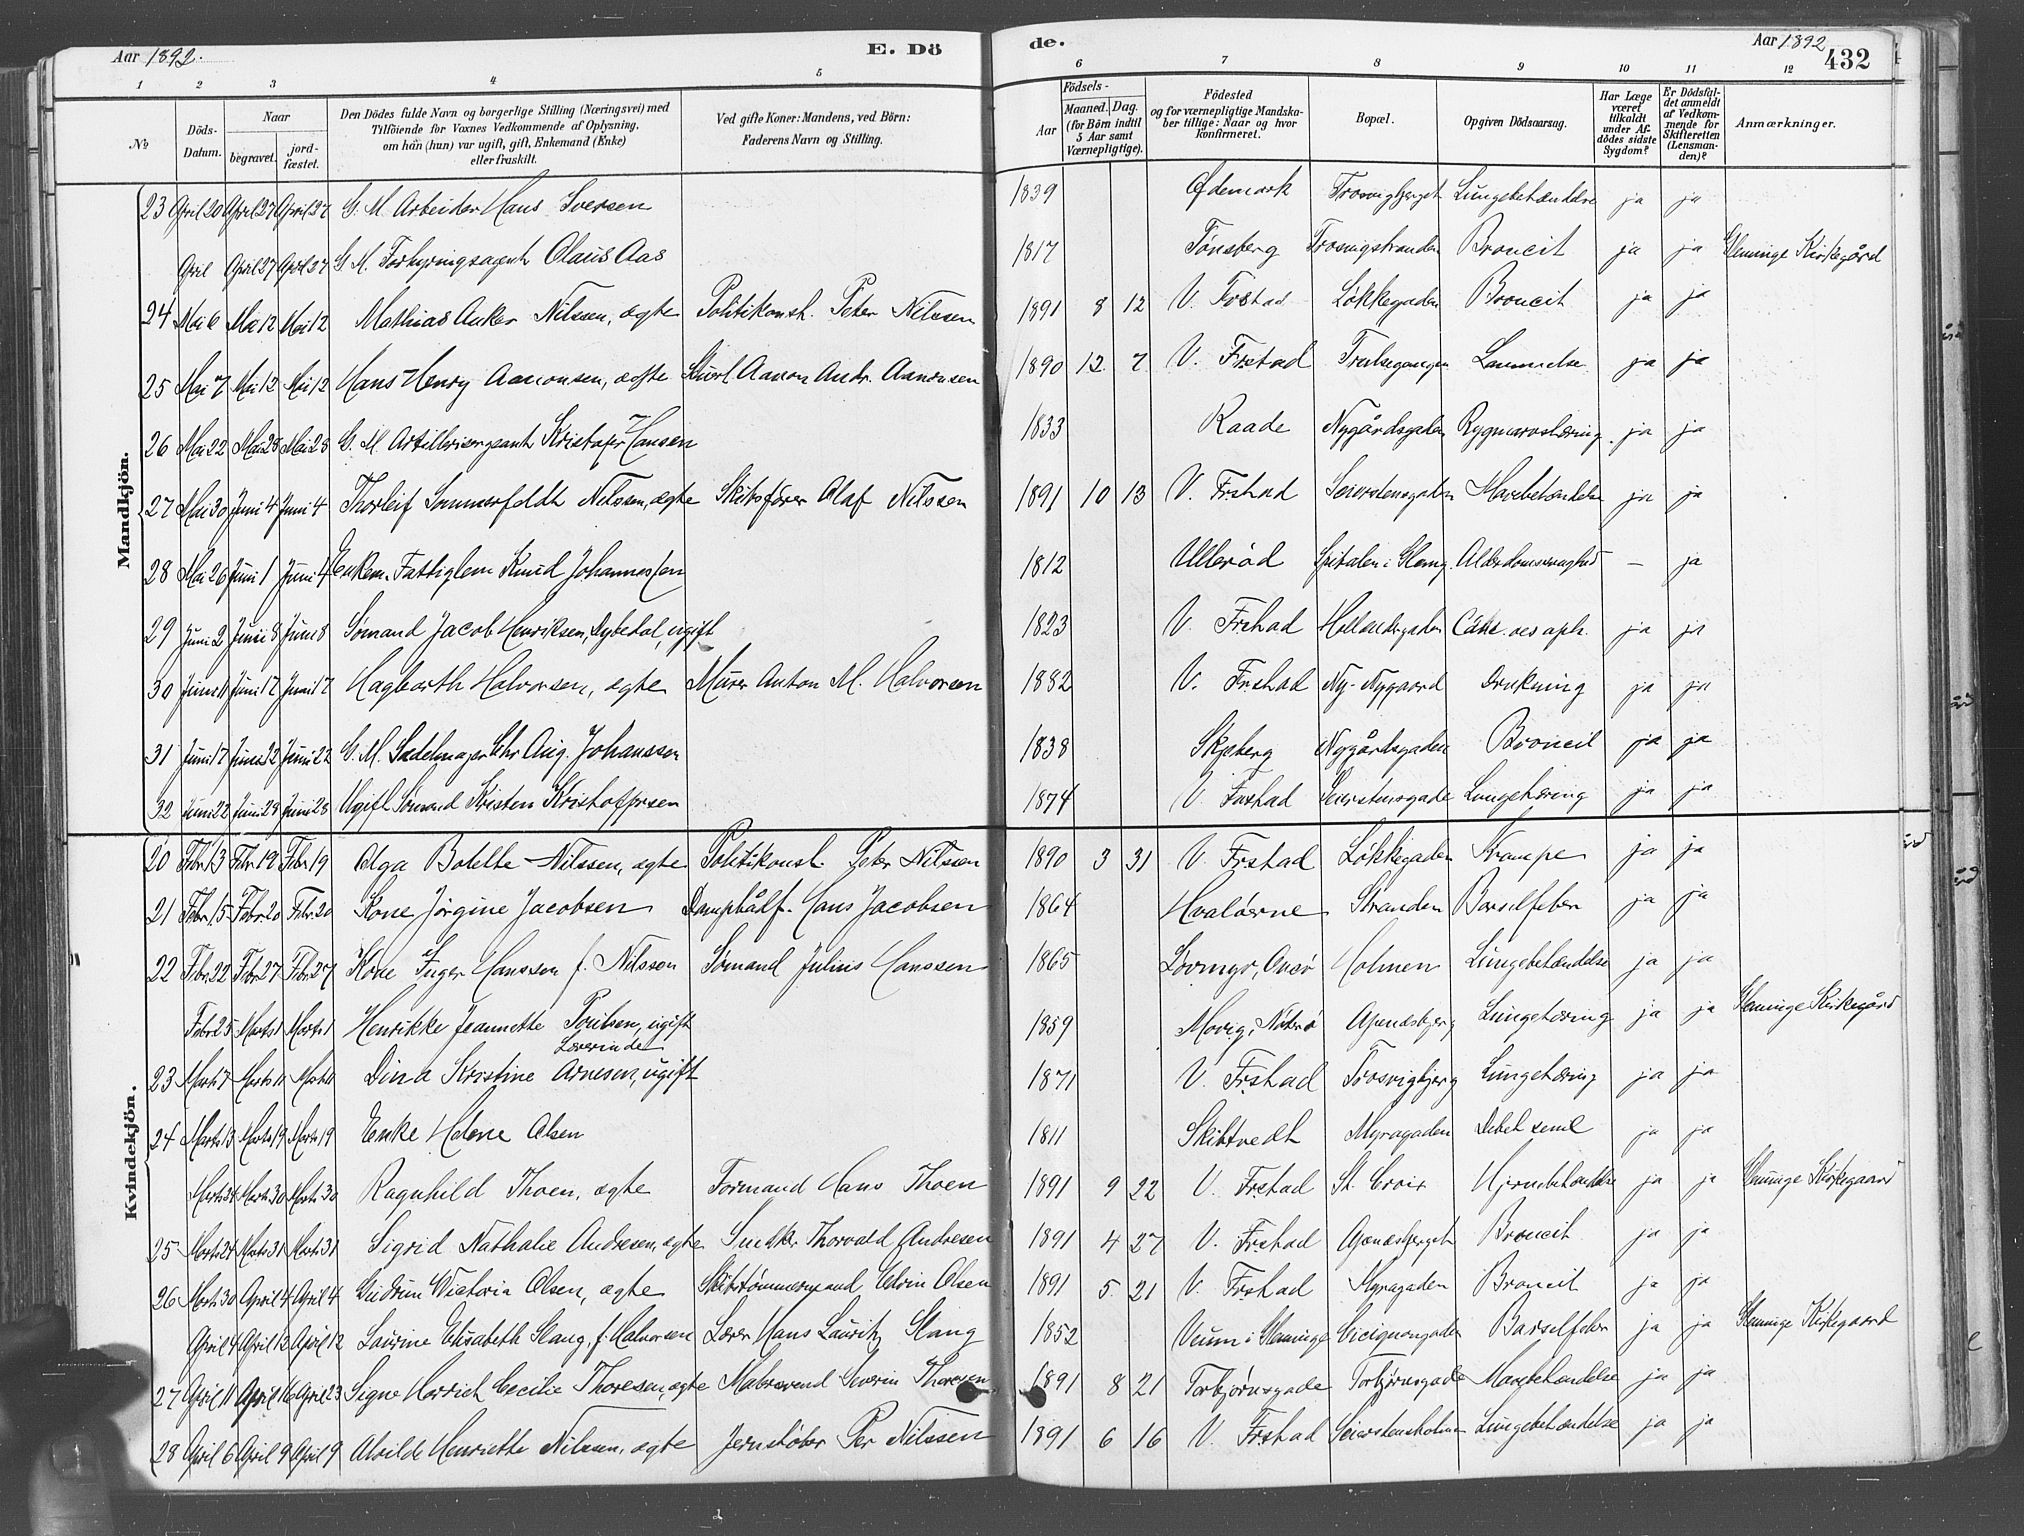 Aar 1892.
E. Dö
de.
Aar 1892
432
1 2 3 4 5 6 7 8 9 10 11 12
No
Döds-Datum.
Naar
begravet.
jord-fæstet.
Den Dödes fulde Navn og borgerlige Stilling (Næringsvei) med
Tilföiende for Voxnes Vedkommende af Oplysning,
om han (hun) var ugift, gift, Enkemand (Enke)
eller fraskilt.
Ved gifte Koner: Mandens, ved Börn:
Faderens Navn og Stilling.
Födsels-
Aar
Maaned. Dag.
(for Börn indtil
5 Aar samt
Værnepligtige).
Födested
og for værnepligtige Mandska-
ber tillige: Naar og hvor
konfirmeret.
Bopæl.
Opgiven Dödsaarsag.
Har Læge
været
tilkaldt
under Af-
dödes sidste
Sygdom?
Er Dödsfal-
det anmeldt
af Vedkom-
mende for
Skifteretten
(Lensman-
den)?
Anmærkninger.
Mandkjön.
23 April 20 April 27 April 27 G. M. Arbeider Hans Iversen 1839 Ødemark Trosvigberget Lungebetændelse ja ja
April April 27 April 27 G. M. Forhyringsagent Olaus Aas 1817 Tønsberg Trosvigstranden Broncit ja ja Glemminge Kirkegård
24 Mai 6 Mai 12 Mai 12 Mathias Anker Nilssen, ægte Politikonst. Peter Nilssen 1891 8 12 V. Frstad Løkkegaden Broncit ja ja
25 Mai 7 Mai 12 Mai 12 Hans Henry Aanonsen, ægte Aanon Andr. Aanonsen 1890 12 7 V. Frstad Trulsegangen ja ja
26 Mai 22 Mai 28 Mai 28 G. M. Artillerisergeant Kristofer Hansen 1833 Raade Nygårdsgaden Rygmarvstæring ja ja
27 Mai 30 Juni 4 Juni 4 Thorleif Sommerfeldt Nilssen, ægte Skibsfører Olaf Nilssen 1891 10 13 V. Frstad Seierstensgaden Mavebetændelse ja ja
28 Mai 26 Juni 1 Juni 4 Enkem. Fattiglem Knud Johannessen 1812 Ullerød Spitalen i Glemg. Alderdomssvaghed — ja
29 Juni 2 Juni 8 Juni 8 Sømand Jacob Henriksen, Dybedal, ugift 1823 V. Frstad Hollendergaden ja ja
30 Juni 11 Juni 17 Juni 17 Hagbarth Halvorsen, ægte Murer Anton M. Halvorsen 1882 V. Frstad Ny-Nygaard Drukning ja ja
31 Juni 17 Juni 22 Juni 22 G. M. Sadelmager Chr Aug. Johanssen 1838 Skjeberg Nygårdsgaden Broncit ja ja
32 Juni 22 Juni 28 Juni 28 Ugift Sømand Kristen Kristoffersen 1874 V. Frstad Seierstensgade Lungetæring ja ja
Kvindekjön.
20 Febr. 13 Febr. 19 Febr. 19 Olga Botelte Nilssen, ægte Politikonst. Peter Nilssen 1890 3 31 V. Frstad Løkkegaden Krampe ja ja
21 Febr. 15 Febr. 20 Febr. 20 Kone Jørgine Jacobsen Hans Jacobsen 1864 Hvaløerne Stranden Barselfeber ja ja
22 Febr. 22 Febr. 27 Febr. 27 Kone Inger Hanssen f. Nilsson Sømand Julius Hanssen 1865 Onsø Holmen Lungebetændelse ja ja
Febr. 25 Marts 1 Marts 1 Henrikke Jeannette Poulsen, ugift Lærerinde 1859 Apenæsbjerg Lungetæring ja ja Glemminge Kirkegård
23 Marts 7 Marts 11 Marts 11 Dina Kristine Arnesen, ugift 1871 V. Frstad Trosvigbjerg Lungetæring ja ja
24 Marts 13 Marts 19 Marts 19 Enke Helene Olsen 1811 Skibtvedt Myragaden Debet senil ja ja
Marts 24 Marts 30 Marts 30 Ragnhild Thoen, ægte Formand Hans Thoen 1891 9 22 V. Frstad St. Croix Hjernebetændelse ja ja Glemminge Kirkegaard
25 Marts 24 Marts 31 Marts 31 Sigrid Nathalie Andresen, ægte Snedker Thorvald Andresen 1891 4 27 V. Frstad Apenæsberget Broncit ja ja
26 Marts 30 April 4 April 4 Gudrun Victoria Olsen, ægte Skibstømmermand Edvin Olsen 1891 5 21 V. Frstad Myragaden Broncit ja ja
April 4 April 12 April 12 Laurine Elisabeth Stang, f. Halvorsen Lærer Hans Lauritz Stang 1852 Veum i Glemminge Cicignongaden Barselfeber ja ja Glemminge Kirkegaard
27 April 11 April 16 April 23 Signe Cecilie Thoresen, ægte Severin Thoresen 1891 8 21 Torbjørnsgade Torbjørnsgade Mavebetændelse ja ja
28 April 6 April 9 April 9 Alvilde Henriette Nilssen, ægte Jernstøber Per Nilssen 1891 6 16 V. Frstad Seierstensholmen Lungebetændelse ja ja